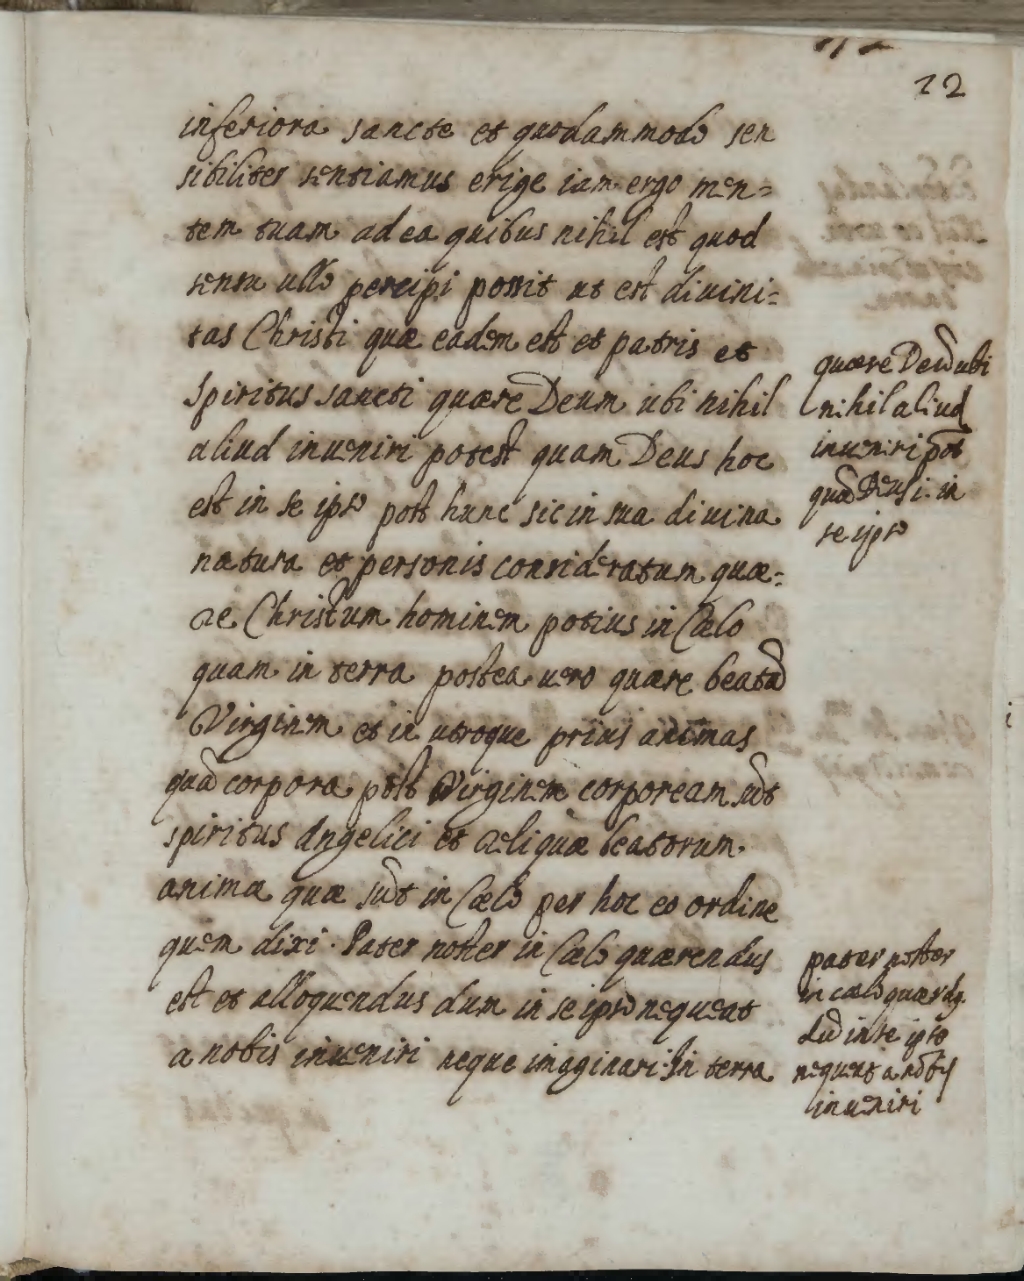 12
inferiora sancte et quodammodo sen
sibiliter sentiamus erige iam ergo men=
tem tuam ad ea quibus nihil est quod
sensu ullo percipi possit ut est diuini=
tas Christi quæ eadem est et patris et
Spiritus sancti quære Deum ubi nihil
aliud inueniri potest quam Deus hoc
est in se ipso post hunc sic in sua diuina
natura et personis consideratum quæ=
re Christum hominem potius in Cælo
quam in terra postea uero quære beatā
Virginem et in utroque prius animas
quā corpora post Virginem corpoream sūt
spiritus Angelici et reliquæ beatorum
animæ quæ sūt in Cælo per hoc eo ordine
quem dixi. Pater noster in Cælo quærendus
est et alloquendus dum in se ipso nequeat
a nobis inueniri neque imaginari. In terra
quære Deū ubi
nihil aliud
inueniri pōt
quā Deus i. in
se ipso
pater noster
in cælo quærēdꝫ
dū in se ipso
nequeat a nobis
inueniri